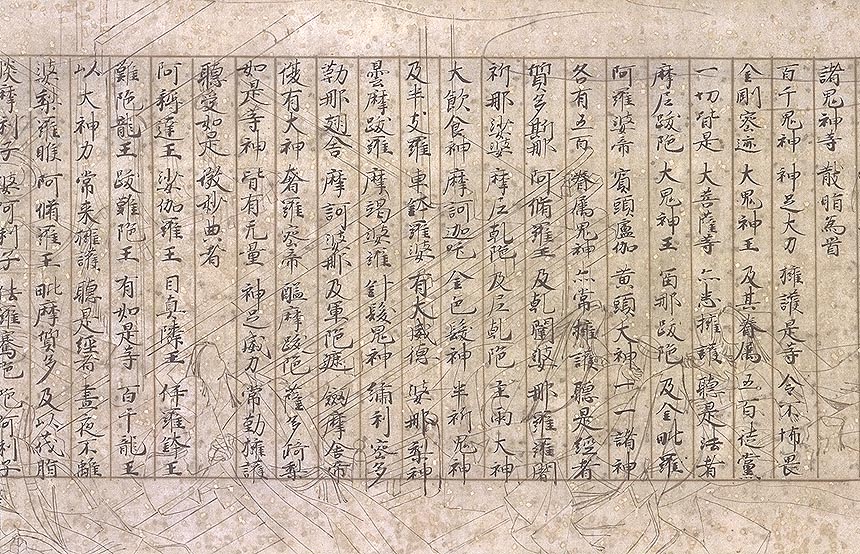 諸鬼神等 散脂為首
百千鬼神 神足大力 擁護是等 令不怖畏
金剛密迹 大鬼神王 及其眷属 五百徒黨
一切皆是 大菩薩等 亦悉擁護 聴是法者
摩尼跋陁 大鬼神王 冨那跋陁 及金毗羅
阿羅婆帝 賓頭盧伽 黄頭大神 一一諸神
各有五百 眷属鬼神 亦常擁護 聴是經者
質多斯那 阿脩羅王 及乹闥婆 那羅羅闍
祁那娑婆 摩尼乹陁 及尼乹陁 主雨大神
大飲食神 摩訶迦吒 金色髮神 半祁鬼神
及半支羅 車鉢羅婆 有大威徳 婆那梨神
曇摩跋羅 摩竭婆羅 針髮鬼神 繍利蜜多
勒那翅舍 摩訶婆那 及軍陁遮 劔摩舍帝
復有大神 奢羅蜜帝 醯摩跋陁 薩多琦梨
如是等神 皆有无量 神足威力 常勤擁護
聴受如是 微妙典者
阿耨達王 娑伽羅王 目真隣王 伊羅鉢王
難陁龍王 跋難陁王 有如是等 百千龍王
以大神力 常来擁護 聴是經者 晝夜不離
婆利羅睺 阿脩羅王 毗摩質多 及以茂脂
睒摩利子 波訶利子 佉羅騫䭾